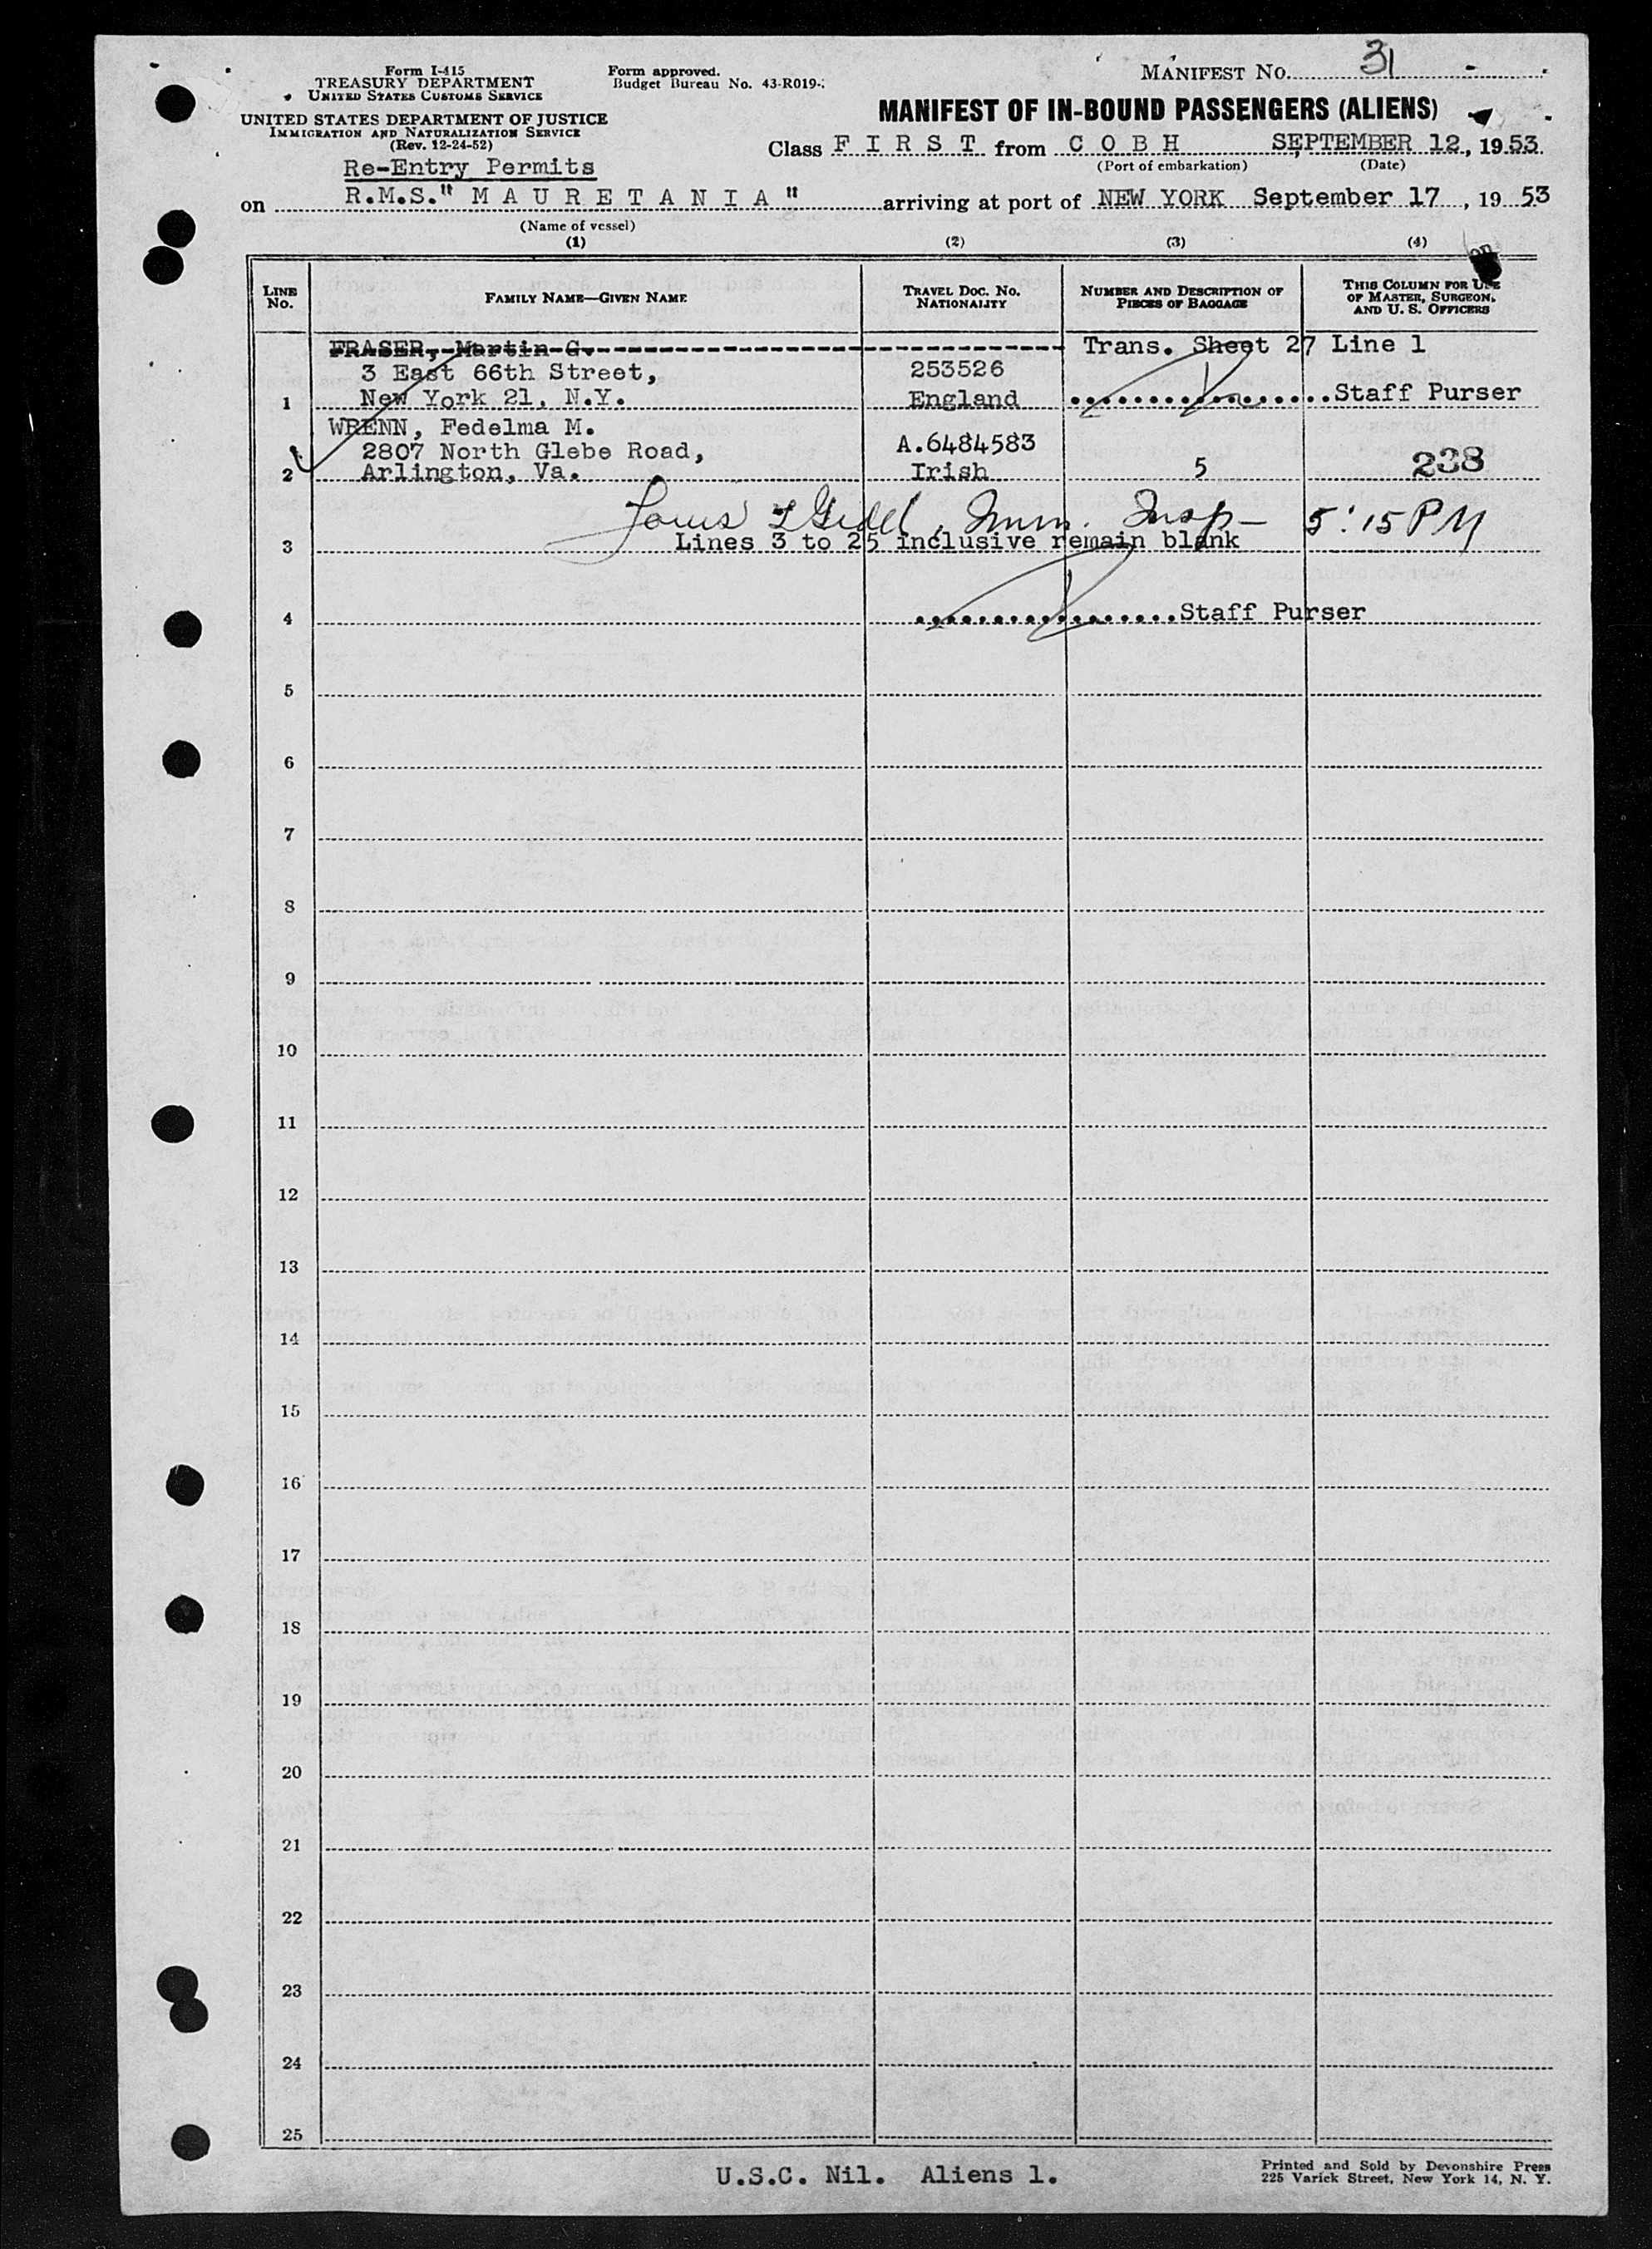 Form I-415
TREASURY DEPARTMENT
UNITED STATES CUSTOMS SERVICE
UNITED STATES DEPARTMENT OF JUSTICE
IMMIGRATION AND NATURALIZATION SERVICE
(Rev. 12-24-52)
Re-Entry Permits
Form approved.
Budget Bureau No. 43-R019-
MANIFEST No. 31
MANIFEST OF IN-BOUND PASSENGERS (ALIENS)
Class F I R S T from C O B H SEPTEMBER 12, 1953
(Port of embarkation) (Date)
on R.M.S." M A U R E T A N I A " arriving at port of NEW YORK September 17, 1953
(Name of vessel)
(1) (2) (3) (4)
LINE No. FAMILY NAME—GIVEN NAME TRAVEL DOC. NO. NATIONALITY NUMBER AND DESCRIPTION OF PIECES OF BAGGAGE THIS COLUMN FOR USE OF MASTER, SURGEON, AND U. S. OFFICERS
FRASER, Martin G. Trans. Sheet 27 Line 1
3 East 66th Street, 253526
1 New York 21, N.Y. England Staff Purser
WRENN, Fedelma M.
2807 North Glebe Road, A.6484583
2 Arlington, Va. Irish 5 238
Imm. Insp- 5:15 PM
3 Lines 3 to 25 inclusive remain blank
4 Staff Purser
5
6
7
8
9
10
11
12
13
14
15
16
17
18
19
20
21
22
23
24
25
U.S.C. Nil. Aliens 1.
Printed and Sold by Devonshire Press
225 Varick Street, New York 14, N. Y.